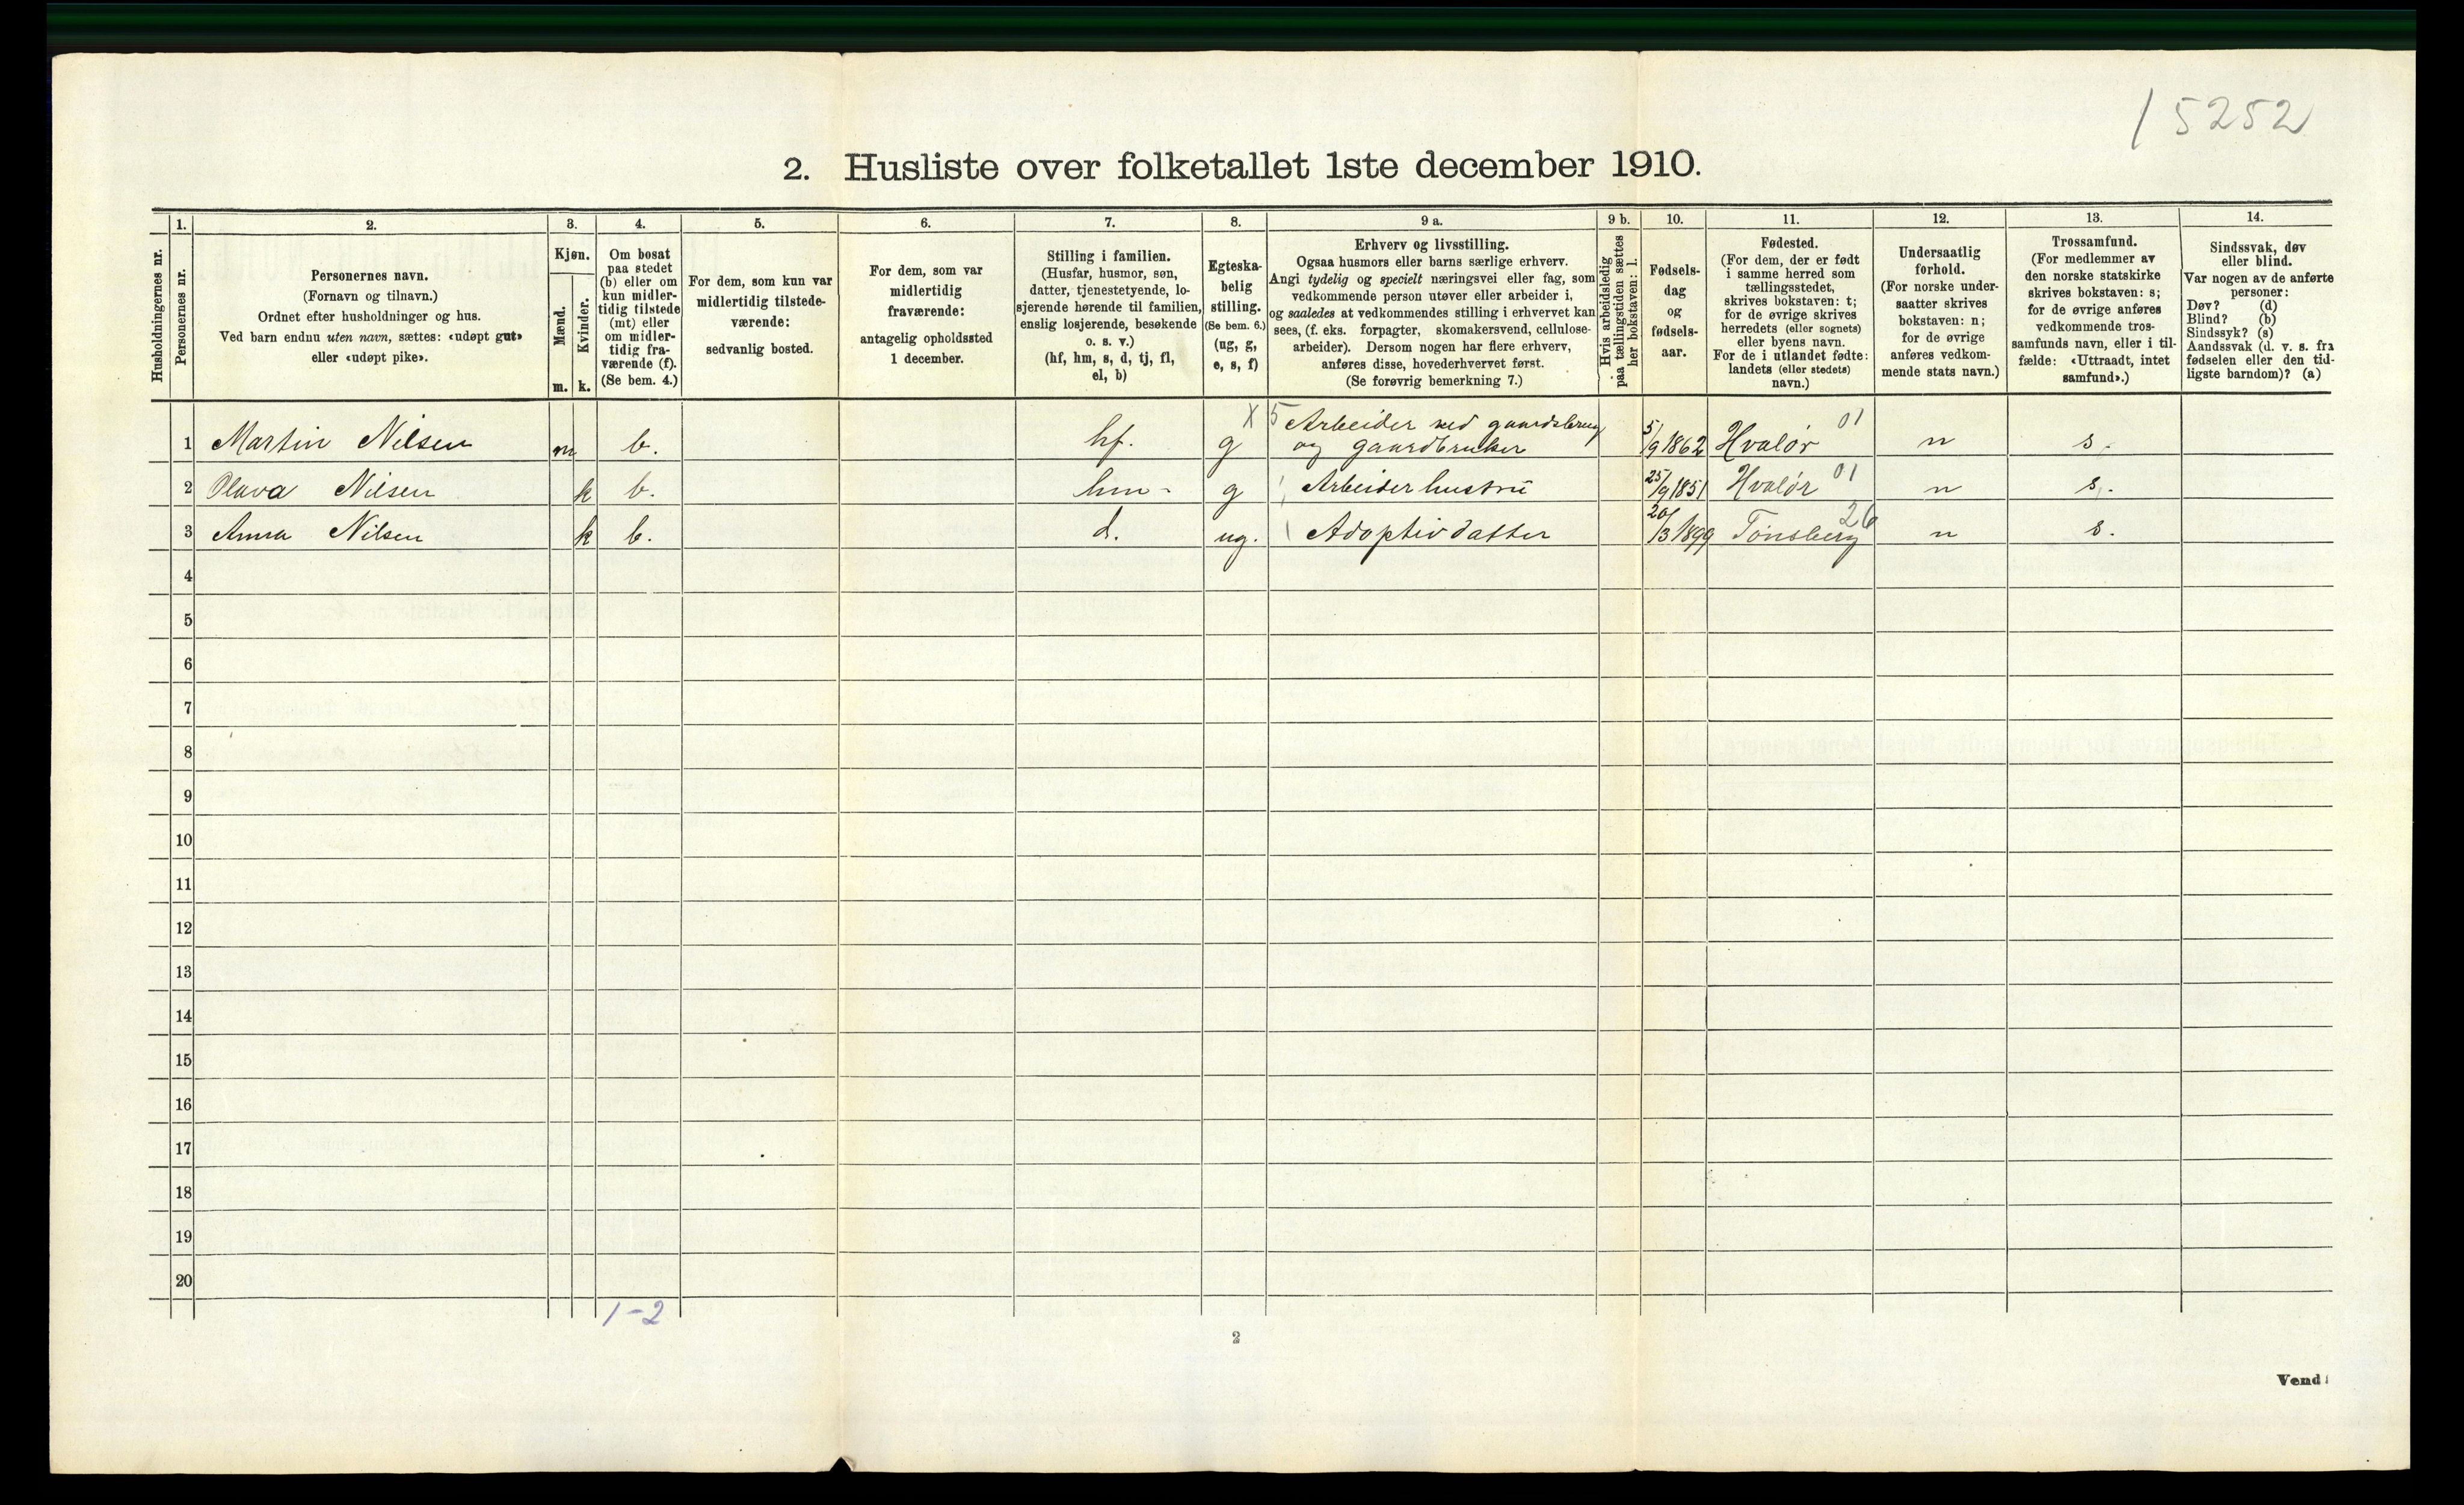 15252
2. Husliste over folketallet 1ste december 1910.
Husholdningernes nr.
1.
Personernes nr.
2.
Personernes navn.
(Fornavn og tilnavn.)
Ordnet efter husholdninger og hus.
Ved barn endnu uten navn, sættes: «udøpt gut»
eller «udøpt pike».
3.
Kjøn.
Mænd.
Kvinder.
m. k.
4.
Om bosat
paa stedet
(b) eller om
kun midler-
tidig tilstede
(mt) eller
om midler-
tidig fra-
værende (f).
(Se bem. 4.)
5.
For dem, som kun var
midlertidig tilstede-
værende:
sedvanlig bosted.
6.
For dem, som var
midlertidig
fraværende:
antagelig opholdssted
1 december.
7.
Stilling i familien.
(Husfar, husmor, søn,
datter, tjenestetyende, lo-
sjerende hørende til familien,
enslig losjerende, besøkende
o. s. v.)
(hf, hm, s, d, tj, fl,
el, b)
8.
Egteska-
belig
stilling.
(Se bem. 6.)
(ug, g,
e, s, f)
9 a.
Erhverv og livsstilling.
Ogsaa husmors eller barns særlige erhverv.
Angi tydelig og specielt næringsvei eller fag, som
vedkommende person utøver eller arbeider i,
og saaledes at vedkommendes stilling i erhvervet kan
sees, (f. eks. forpagter, skomakersvend, cellulose-
arbeider). Dersom nogen har flere erhverv,
anføres disse, hovederhvervet først.
(Se forøvrig bemerkning 7.)
9 b.
Hvis arbeidsledig
paa tællingstiden sættes
her bokstaven: l.
10.
Fødsels-
dag
og
fødsels-
aar.
11.
Fødested.
(For dem, der er født
i samme herred som
tællingsstedet,
skrives bokstaven: t;
for de øvrige skrives
herredets (eller sognets)
eller byens navn.
For de i utlandet fødte:
landets (eller stedets)
navn.)
12.
Undersaatlig
forhold.
(For norske under-
saatter skrives
bokstaven: n;
for de øvrige
anføres vedkom-
mende stats navn.)
13.
Trossamfund.
(For medlemmer av
den norske statskirke
skrives bokstaven: s;
for de øvrige anføres
vedkommende tros-
samfunds navn, eller i til-
fælde: «Uttraadt, intet
samfund».)
14.
Sindssvak, døv
eller blind.
Var nogen av de anførte
personer:
Døv? (d)
Blind? (b)
Sindssyk? (s)
Aandssvak (d. v. s. fra
fødselen eller den tid-
ligste barndom)? (a)
1 Martin Nilsen m b. hf. g X 5 Arbeider ved gaardsbrug
og gaardbruker 5/9 1862 Hvalør 01 n s.
2 Olava Nilsen k b. hm - g Arbeiderhustru 25/9 1851 Hvalør 01 n s.
3 Anna Nilsen k b. d. ug. Adoptivdatter 20/3 1899 Tønsberg 26 n s.
4
5
6
7
8
9
10
11
12
13
14
15
16
17
18
19
20
1-2
2
Vend!